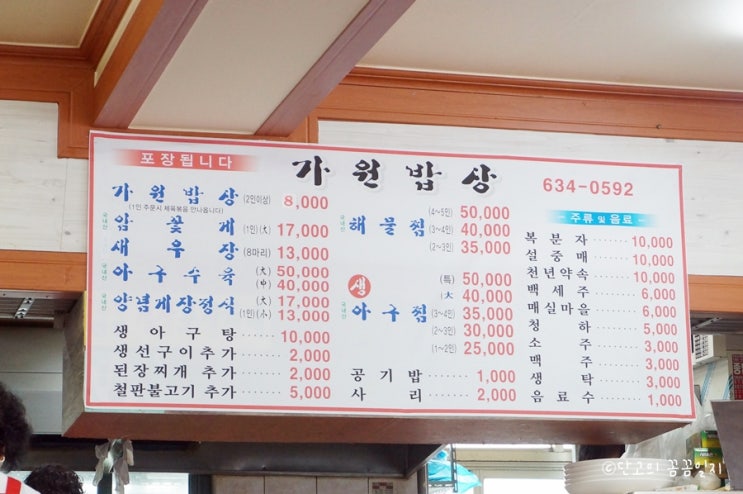 포장됩니다
가원밥상
634-0592
가원밥상 (2인이상) 8,000
(1인 주문시 제육볶음 안나옵니다)
국내산 암꽃게 1인(大) 17,000
새우장 (8마리) 13,000
국내산 아구수육 (大) 50,000
(中) 40,000
국내산 양념게장정식 (大) 17,000
1인(小) 13,000
생아구탕 10,000
생선구이추가 2,000
된장찌개 추가 2,000
철판불고기 추가 5,000
국내산 해물찜 (4~5인) 50,000
(3~4인) 40,000
(2~3인) 35,000
생
국내산 아구찜 (특) 50,000
大 40,000
(3~4인) 35,000
(2~3인) 30,000
(1~2인) 25,000
공기밥 1,000
사리 2,000
주류 및 음료
복분자 10,000
설중매 10,000
천년약속 10,000
백세주 6,000
매실마을 6,000
청하 5,000
소주 3,000
맥주 3,000
생탁 3,000
음료수 1,000
©단고의 꼼꼼일지